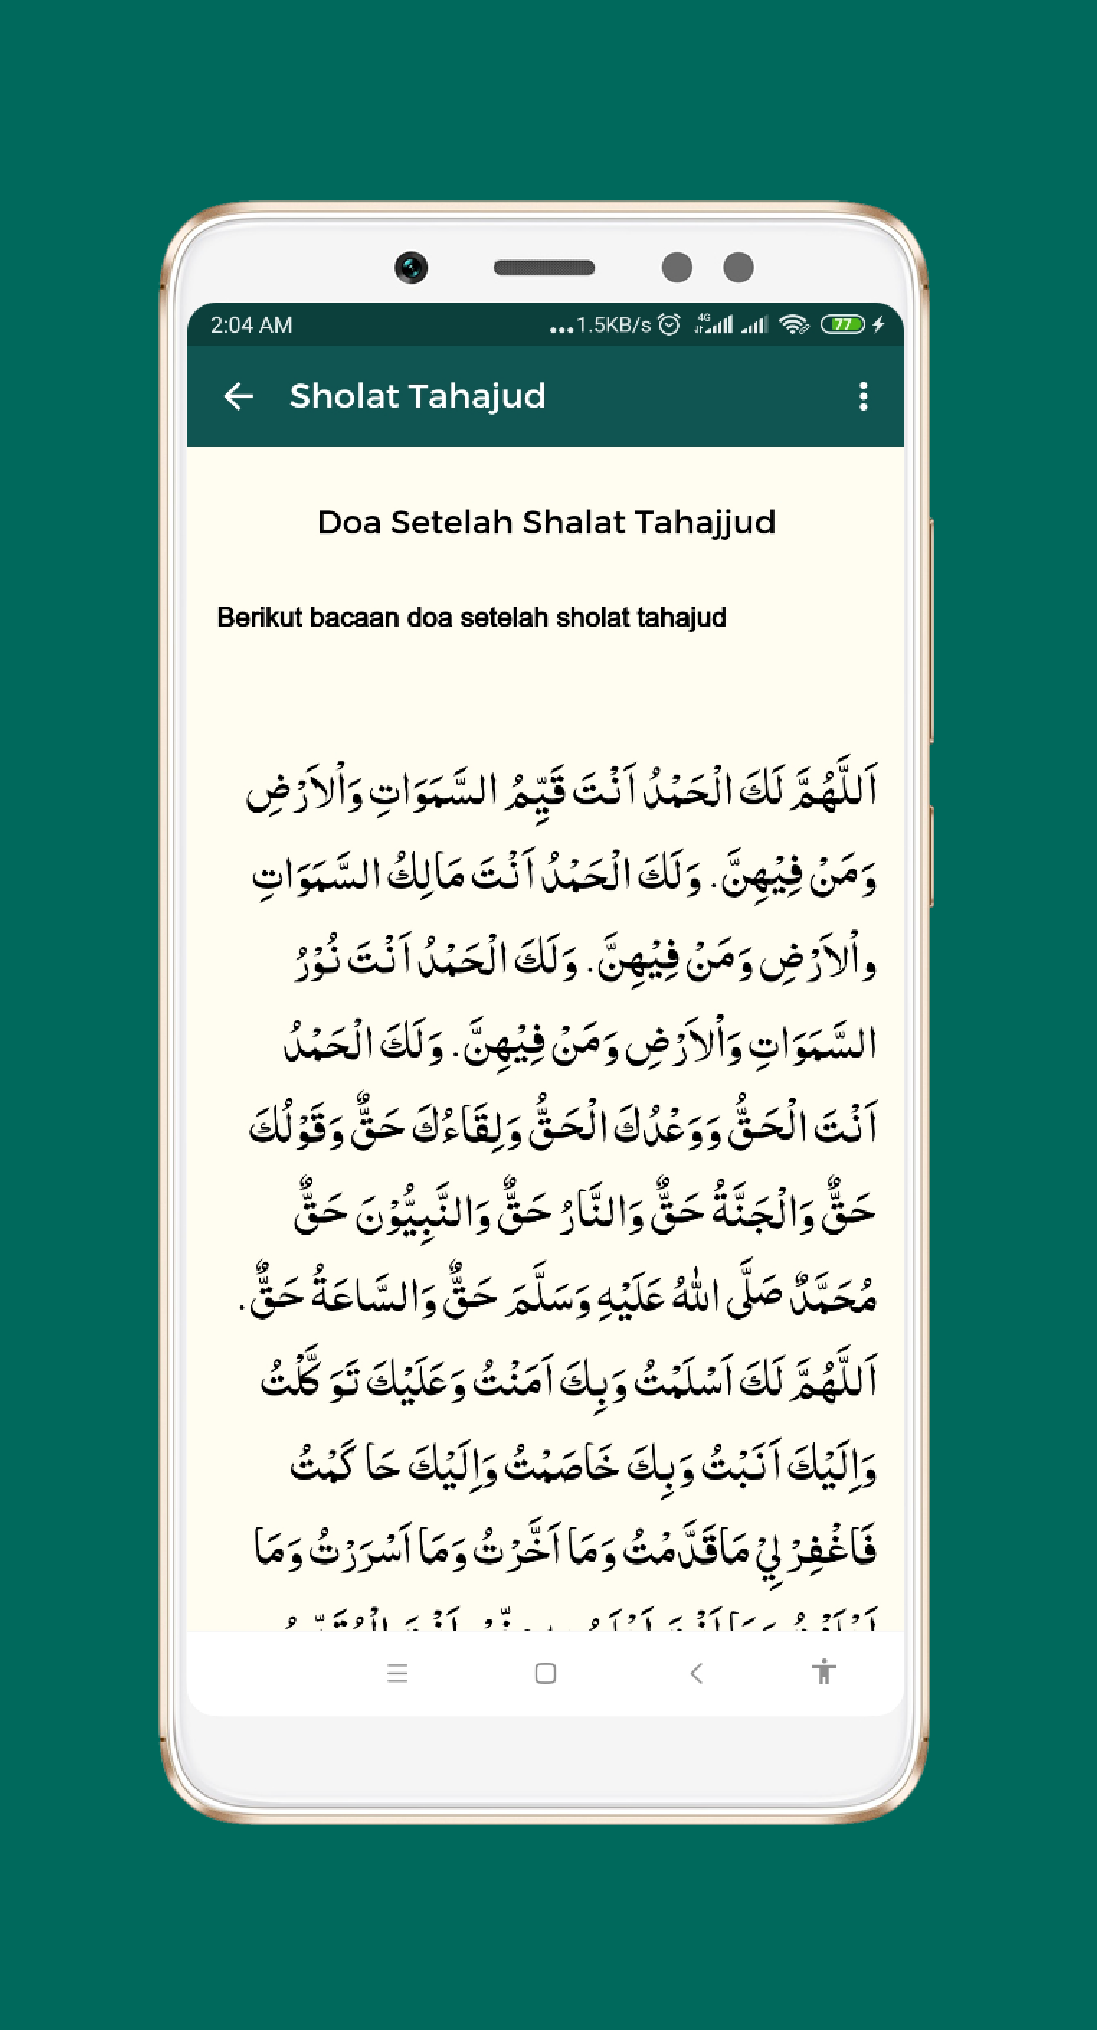 2:04 AM
...1.5KB/s 4G 77
Sholat Tahajud
Doa Setelah Shalat Tahajjud
Berikut bacaan doa setelah sholat tahajud
اَللَّهُمَّ لَكَ الْحَمْدُ اَنْتَ قَيِّمُ السَّمَوَاتِ وَاْلاَرْضِ
وَمَنْ فِيْهِنَّ. وَلَكَ الْحَمْدُ اَنْتَ مَالِكُ السَّمَوَاتِ
واْلاَرْضِ وَمَنْ فِيْهِنَّ. وَلَكَ الْحَمْدُ اَنْتَ نُوْرُ
السَّمَوَاتِ وَاْلاَرْضِ وَمَنْ فِيْهِنَّ. وَلَكَ الْحَمْدُ
اَنْتَ الْحَقُّ وَوَعْدُكَ الْحَقُّ وَلِقَاءُكَ حَقٌّ وَقَوْلُكَ
حَقٌّ وَالْجَنَّةُ حَقٌّ وَالنَّارُ حَقٌّ وَالنَّبِيُّوْنَ حَقٌّ
مُحَمَّدٌ صَلَّى اللهُ عَلَيْهِ وَسَلَّمَ حَقٌّ وَالسَّاعَةُ حَقٌّ.
اَللَّهُمَّ لَكَ اَسْلَمْتُ وَبِكَ اَمَنْتُ وَعَلَيْكَ تَوَ كَّلْتُ
وَاِلَيْكَ اَنَبْتُ وَبِكَ خَاصَمْتُ وَاِلَيْكَ حَا كَمْتُ
فَاغْفِرْ لِيْ مَاقَدَّمْتُ وَمَا اَخَّرْتُ وَمَا اَسْرَرْتُ وَمَا